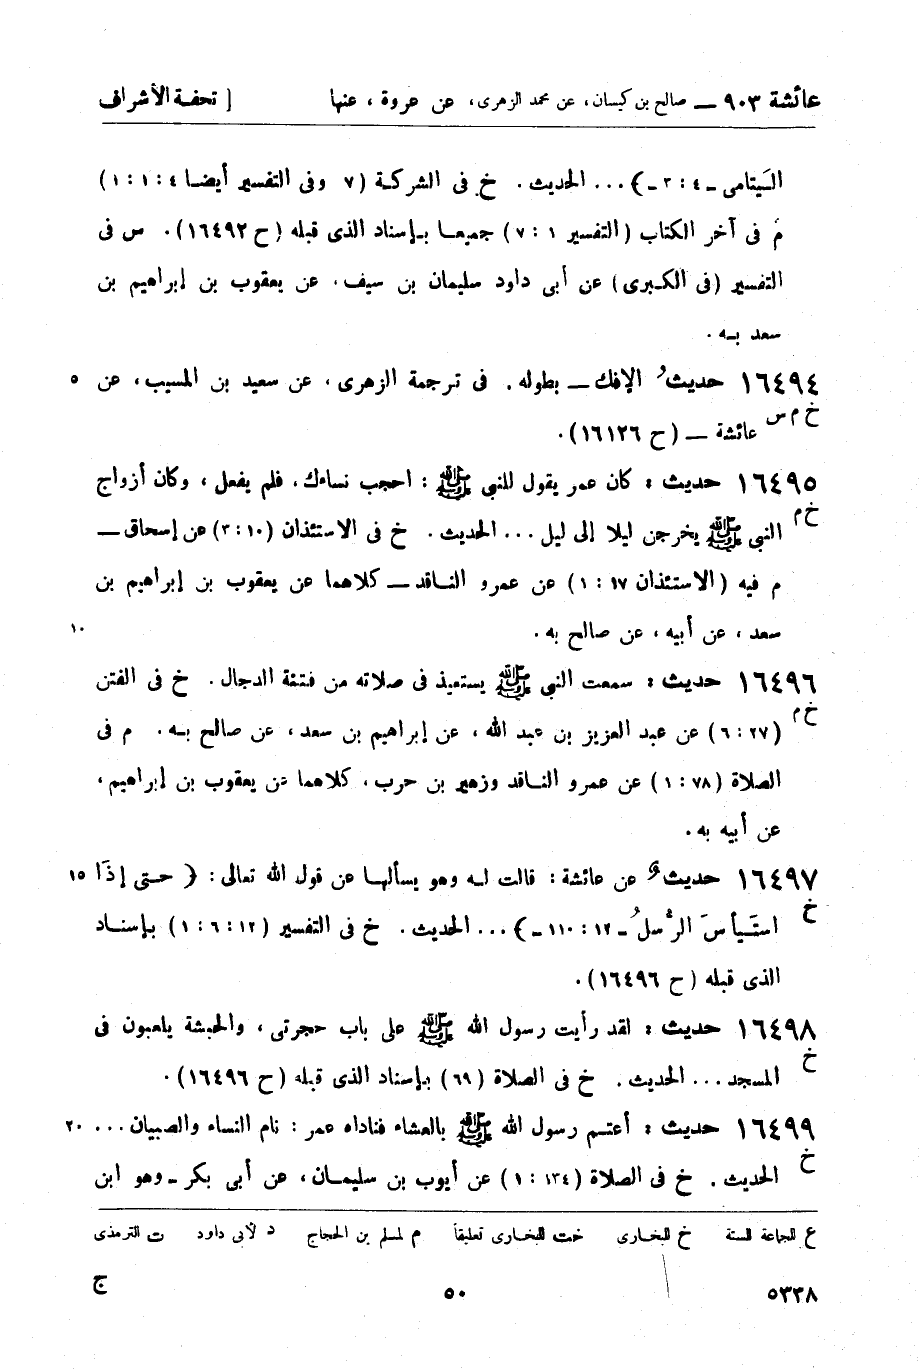 عائشة ٩٠٣ — صالح بن كيسان، عن محمد الزهرى، عن عروة، عنها [ تحفة الأشراف
اليَتامى ـ ٤ : ٣ ـ﴾ ... الحديث. خ فى الشركة (٧ وفى التفسير أيضا ٤ : ١ : ١)
م فى آخر الكتاب (التفسير ١ : ٧) جميعا بإسناد الذى قبله (ح ١٦٤٩٢). س فى
التفسير (فى الكبرى) عن أبى داود سليمان بن سيف، عن يعقوب بن إبراهيم بن
سعد به.
١٦٤٩٤ حديثُ الإفك — بطوله. فى ترجمة الزهرى، عن سعيد بن المسيب، عن ٥
خ م س عائشة — (ح ١٦١٢٦).
١٦٤٩٥ حديث : كان عمر يقول للنبى ﷺ : احجب نساءك، فلم يفعل، وكان أزواج
خ م النبى ﷺ يخرجن ليلا إلى ليل ... الحديث. خ فى الاستئذان (١٠ : ٣) عن إسحاق —
م فيه (الاستئذان ١٧ : ١) عن عمرو الناقد — كلاهما عن يعقوب بن إبراهيم بن
سعد، عن أبيه، عن صالح به. ١٠
١٦٤٩٦ حديث : سمعت النبى ﷺ يستعيذ فى صلاته من فتنة الدجال. خ فى الفتن
خ م (٢٧ : ٦) عن عبد العزيز بن عبد الله، عن إبراهيم بن سعد، عن صالح به. م فى
الصلاة (٧٨ : ١) عن عمرو الناقد وزهير بن حرب، كلاهما عن يعقوب بن إبراهيم،
عن أبيه به.
١٦٤٩٧ حديث عن عائشة : قالت له وهو يسألها عن قول الله تعالى : ﴿ حتى إذَا ١٥
خ استَيأسَ الرُّسلُ ـ ١٢ : ١١٠ ـ﴾ ... الحديث. خ فى التفسير (١٢ : ٦ : ١) بإسناد
الذى قبله (ح ١٦٤٩٦).
١٦٤٩٨ حديث : لقد رأيت رسول الله ﷺ على باب حجرتى، والحبشة يلعبون فى
خ المسجد ... الحديث. خ فى الصلاة (٦٩) بإسناد الذى قبله (ح ١٦٤٩٦).
١٦٤٩٩ حديث : أعتم رسول الله ﷺ بالعشاء فناداه عمر : نام النساء والصبيان ... ٢٠
خ الحديث. خ فى الصلاة (١٣٤ : ١) عن أيوب بن سليمان، عن أبى بكر ـ وهو ابن
ع للجماعة الستة خ للبخارى خت للبخارى تعليقاً م لمسلم بن الحجاج د لأبى داود ت للترمذى
٥٣٣٨ ٥٠ ج